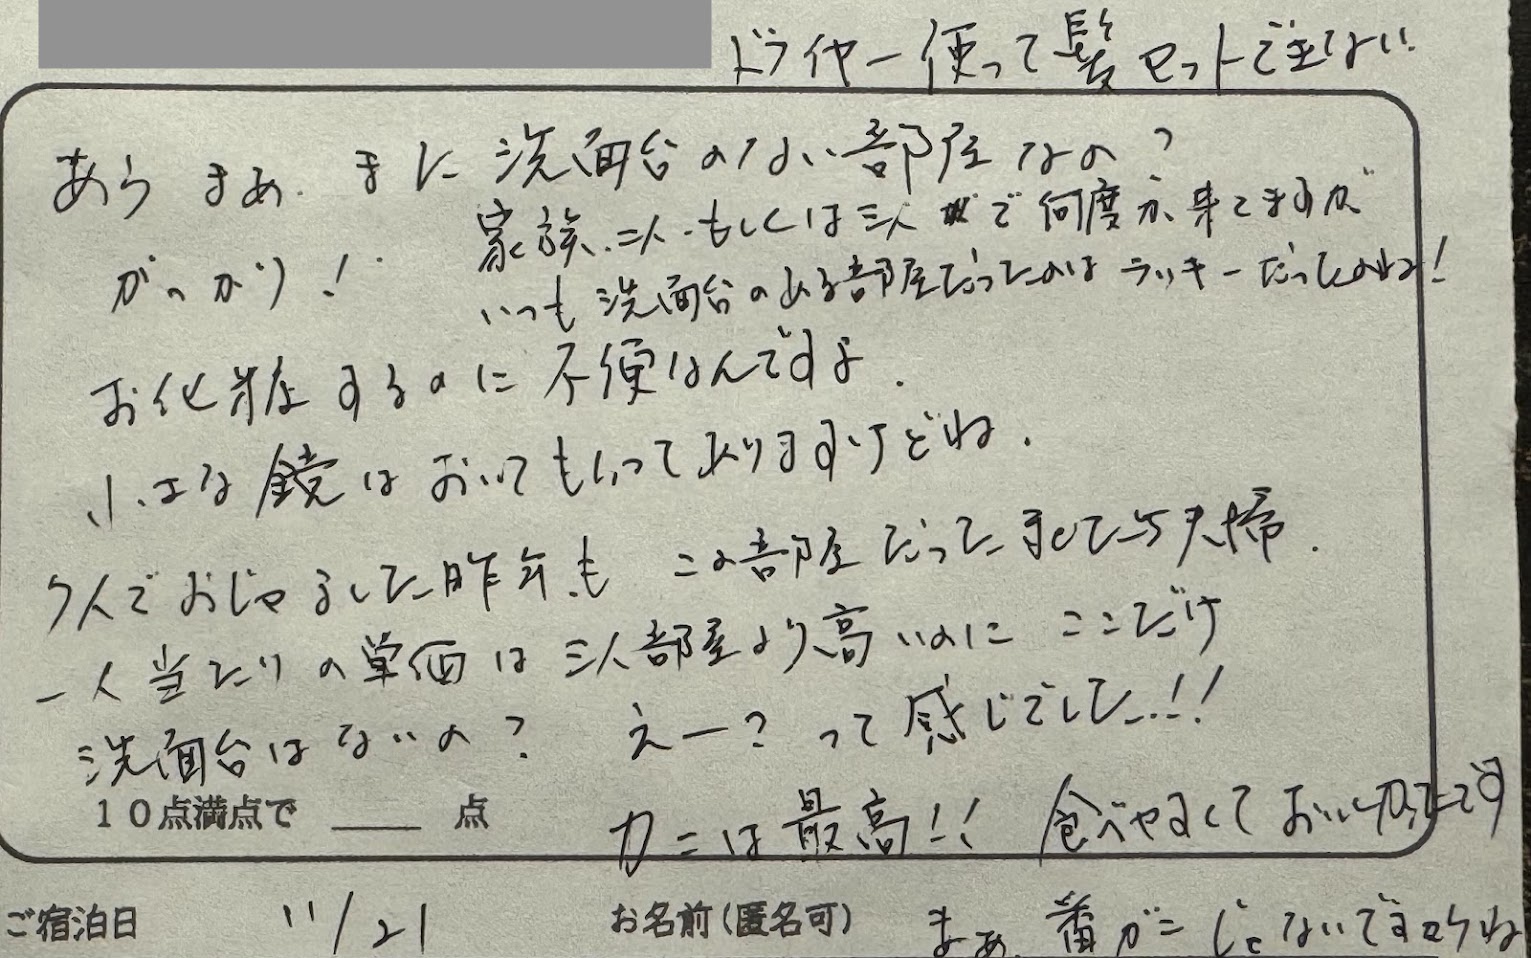 ドライヤー使って髪セットできない
あら まぁ. また 洗面台のない部屋なの?
家族、二人・もしくは三人で何度か来てますが
がっかり!
いつも洗面台のある部屋だったのはラッキーだったのね!
お化粧するのに不便なんですよ.
小さな鏡はおいてもらって ありますけどね.
2人でおじゃました昨年も この部屋だった 夫婦.
一人当たりの単価は三人部屋より高いのに ここだけ
洗面台はないの? えー? って感じでした..!!
10点満点で 点
カニは最高!! 食べやすくて おいしかったです
ご宿泊日 11/21 お名前(匿名可) まぁ、番ガニじゃないですけどね